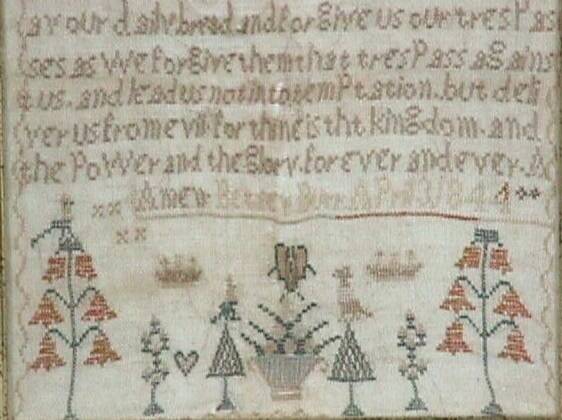 ay our daily bread. and forgive us our tres Pas
ses as We forgive them that tresPass agains
t us. and lead us not in to temPtation. but deli
ver us from evil for thine is tht kingdom. and
the PoWer and the glory. for ever and ever. A
Amen Betsey APril 3 1844